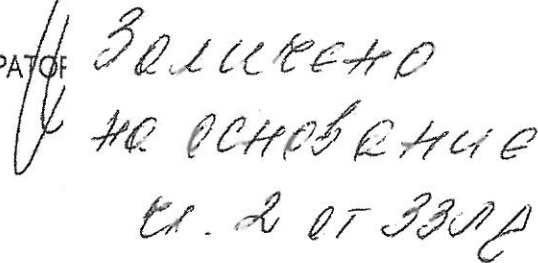 РАТОР
Заличено
на основание
чл. 2 от ЗЗЛД